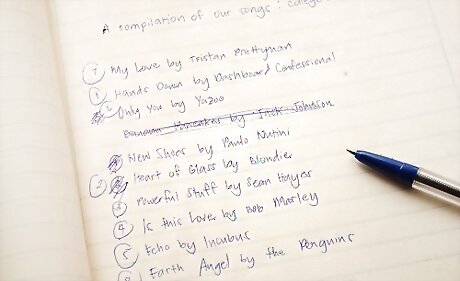 A compilation of our songs : college
7 My Love by Tristan Prettyman
1 Hands Down by Dashboard Confessional
6 Only You by Yazoo
Banana Pancakes by Jack Johnson
New Shoes by Paulo Nutini
2 Heart of Glass by Blondier
3 Powerful Stuff by Sean Hayes
4 Is this Love by Bob Marley
5 Echo by Incubus
8 Earth Angel by the Penguins